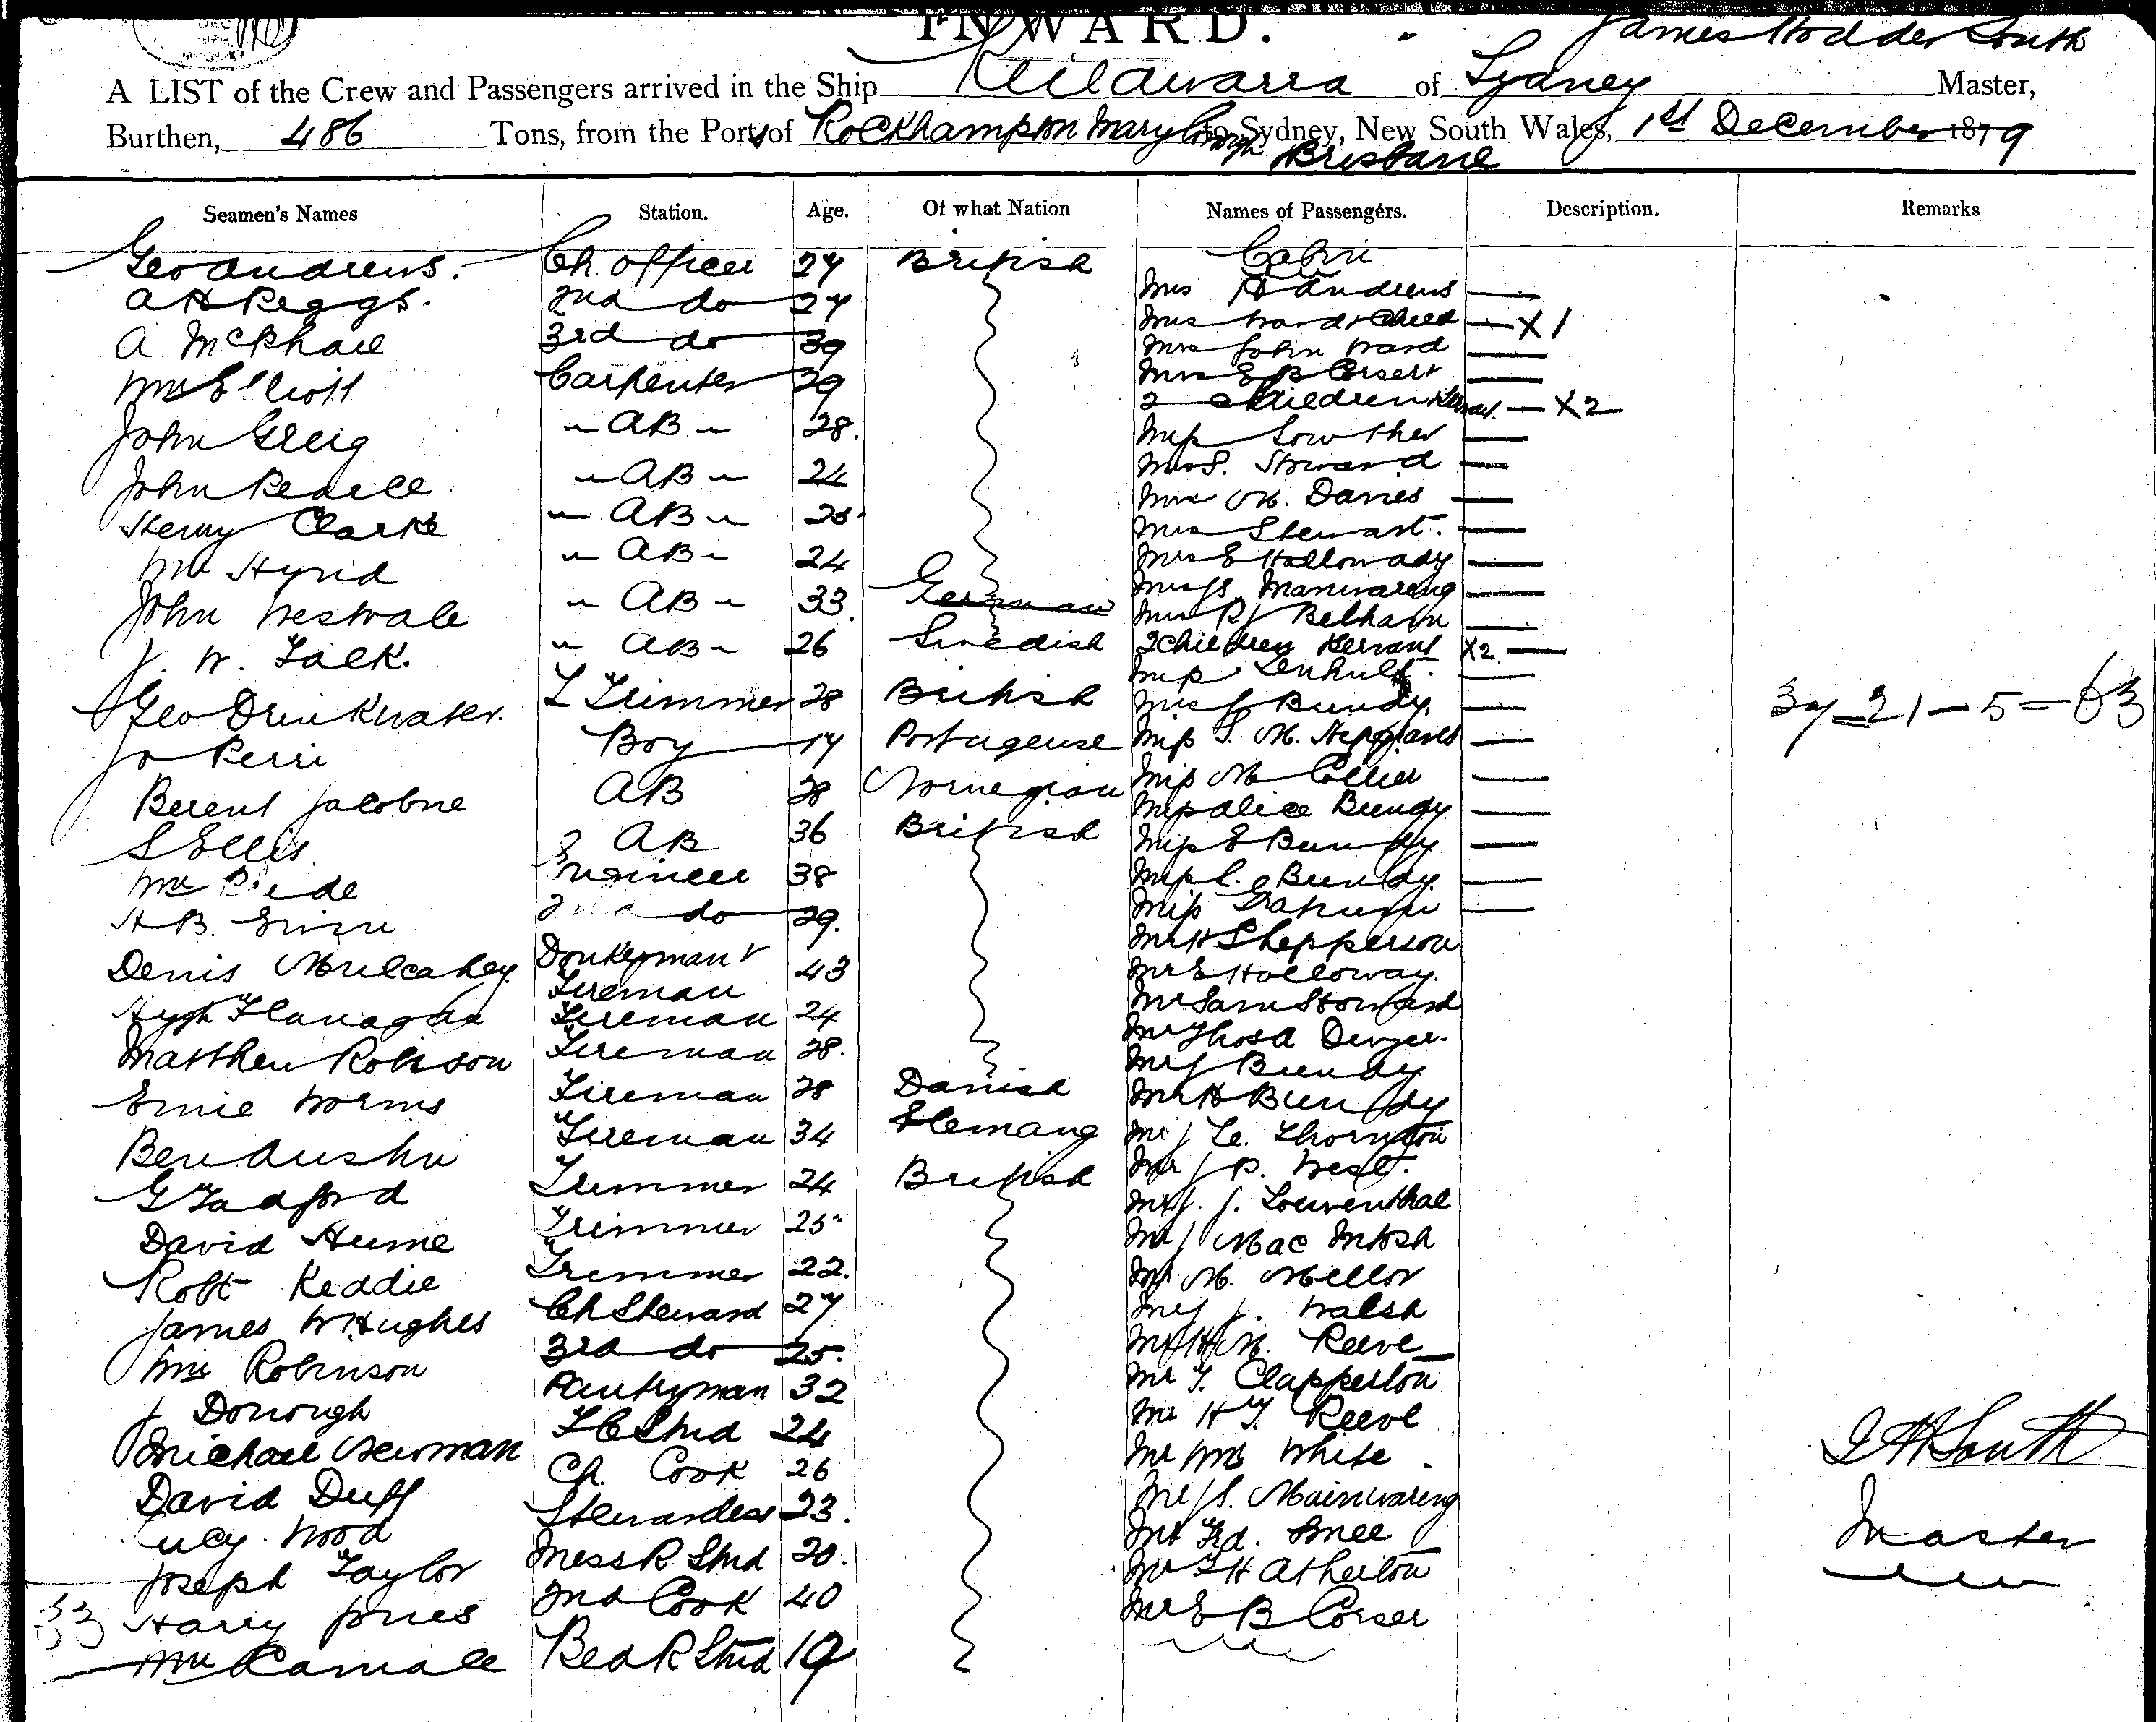 INWARD.
James Hodder South
A LIST of the Crew and Passengers arrived in the Ship Keilawarra of Sydney Master,
Burthen, 486 Tons, from the Ports of Rockhampton Maryborough to Sydney, New South Wales, 1st December 1879
Brisbane
Seamen's Names Station. Age. Of what Nation Names of Passengers. Description. Remarks
Cabin
Geo Andrews. Ch. officer 27 British Mrs Andrews
A H Peggs. 2nd do 27 Mrs Ward & Child — X 1
A McPhail 3rd do 39 Mrs John Ward
Wm Elliott Carpenter 39 Mrs E B Corser &
2 Children Servant. — X 2
John Greig " AB " 28. Miss Lowther
John Pearce " AB " 24 Mrs S. Stoward
Mrs M. Davies
Henry Clarke " AB " 25 Mrs Stewart.
Wm Hynd " AB " 24 Mrs E Holloway
Mrs S. Manwareng
John Westvale " AB " 33. German Mrs R J Belham
J. W. Falk. " AB " 26 Swedish 2 Children Servant X 2
Miss
Geo Drinkwater. L Trimmer 28 British Mrs J Bundy.
37 — 21 — 5 = 63
Jo Perri Boy 17 Portugeuse Miss S. M.
Berent Jacobne AB 28 Norwegian Miss M Collier
Miss Alice Bundy
S Ellis AB 36 British Miss E Bundy
Wm Engineer 38 Miss C. Bundy.
H B. 2nd do 29. Miss
Mr H Shepperson
Denis Mulcahey. Donkeyman & 43 Mr E Holloway.
Fireman Mr Sam Stoward
Hugh Flanagan Fireman 24 Mr Thos A
Matthew Robson Fireman 28. Mr J Bundy
Ernie Worms Fireman 28 Danish Mr H Bundy
Ben Fireman 34 Flemang Mr J Le. Thornton
G Tadford Trimmer 24 British Mr J P. West.
Mr J. J. Louwenthal
David Hume Trimmer 25 Mr J Mac Intosh
Robt Keddie Trimmer 22. Mr M. Mellor
James W Hughes Ch Steward 27 Mr J. Walsh
Wm Robinson 3rd do 25. Mr H M. Reeve
J Donough Pantryman 32 Mr T. Clapperton
Michael Newman F C Stwd 24 Mr H T. Reeve
David Duff Ch. Cook 26 Mr Wm White
J H South
Lucy Wood Stewardess 23. Mr J S. Mainwareng
Master
Joseph Taylor Mess R Stwd 20. Mr Fd. Smee
Harry Jones 2nd Cook 40 Mr F H Atherton
33
Wm Bed R Stwd 19 Mr E B Corser